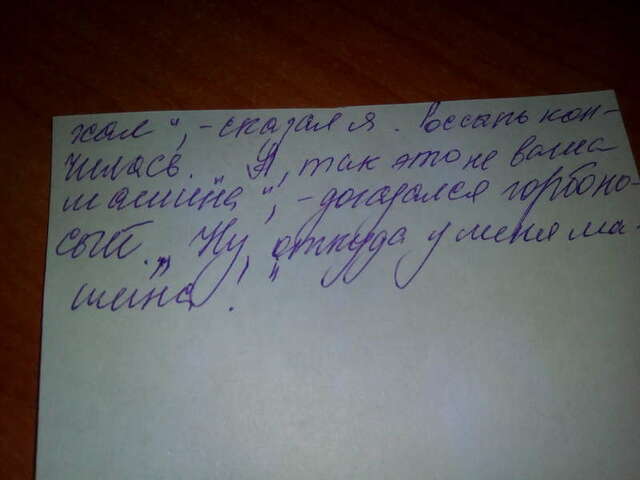 хал", - сказал я. Россыпь кон-
чилась. „А, так это не ваша
машина", - догадался горбоно-
сый. „Ну, откуда у меня ма-
шина!"